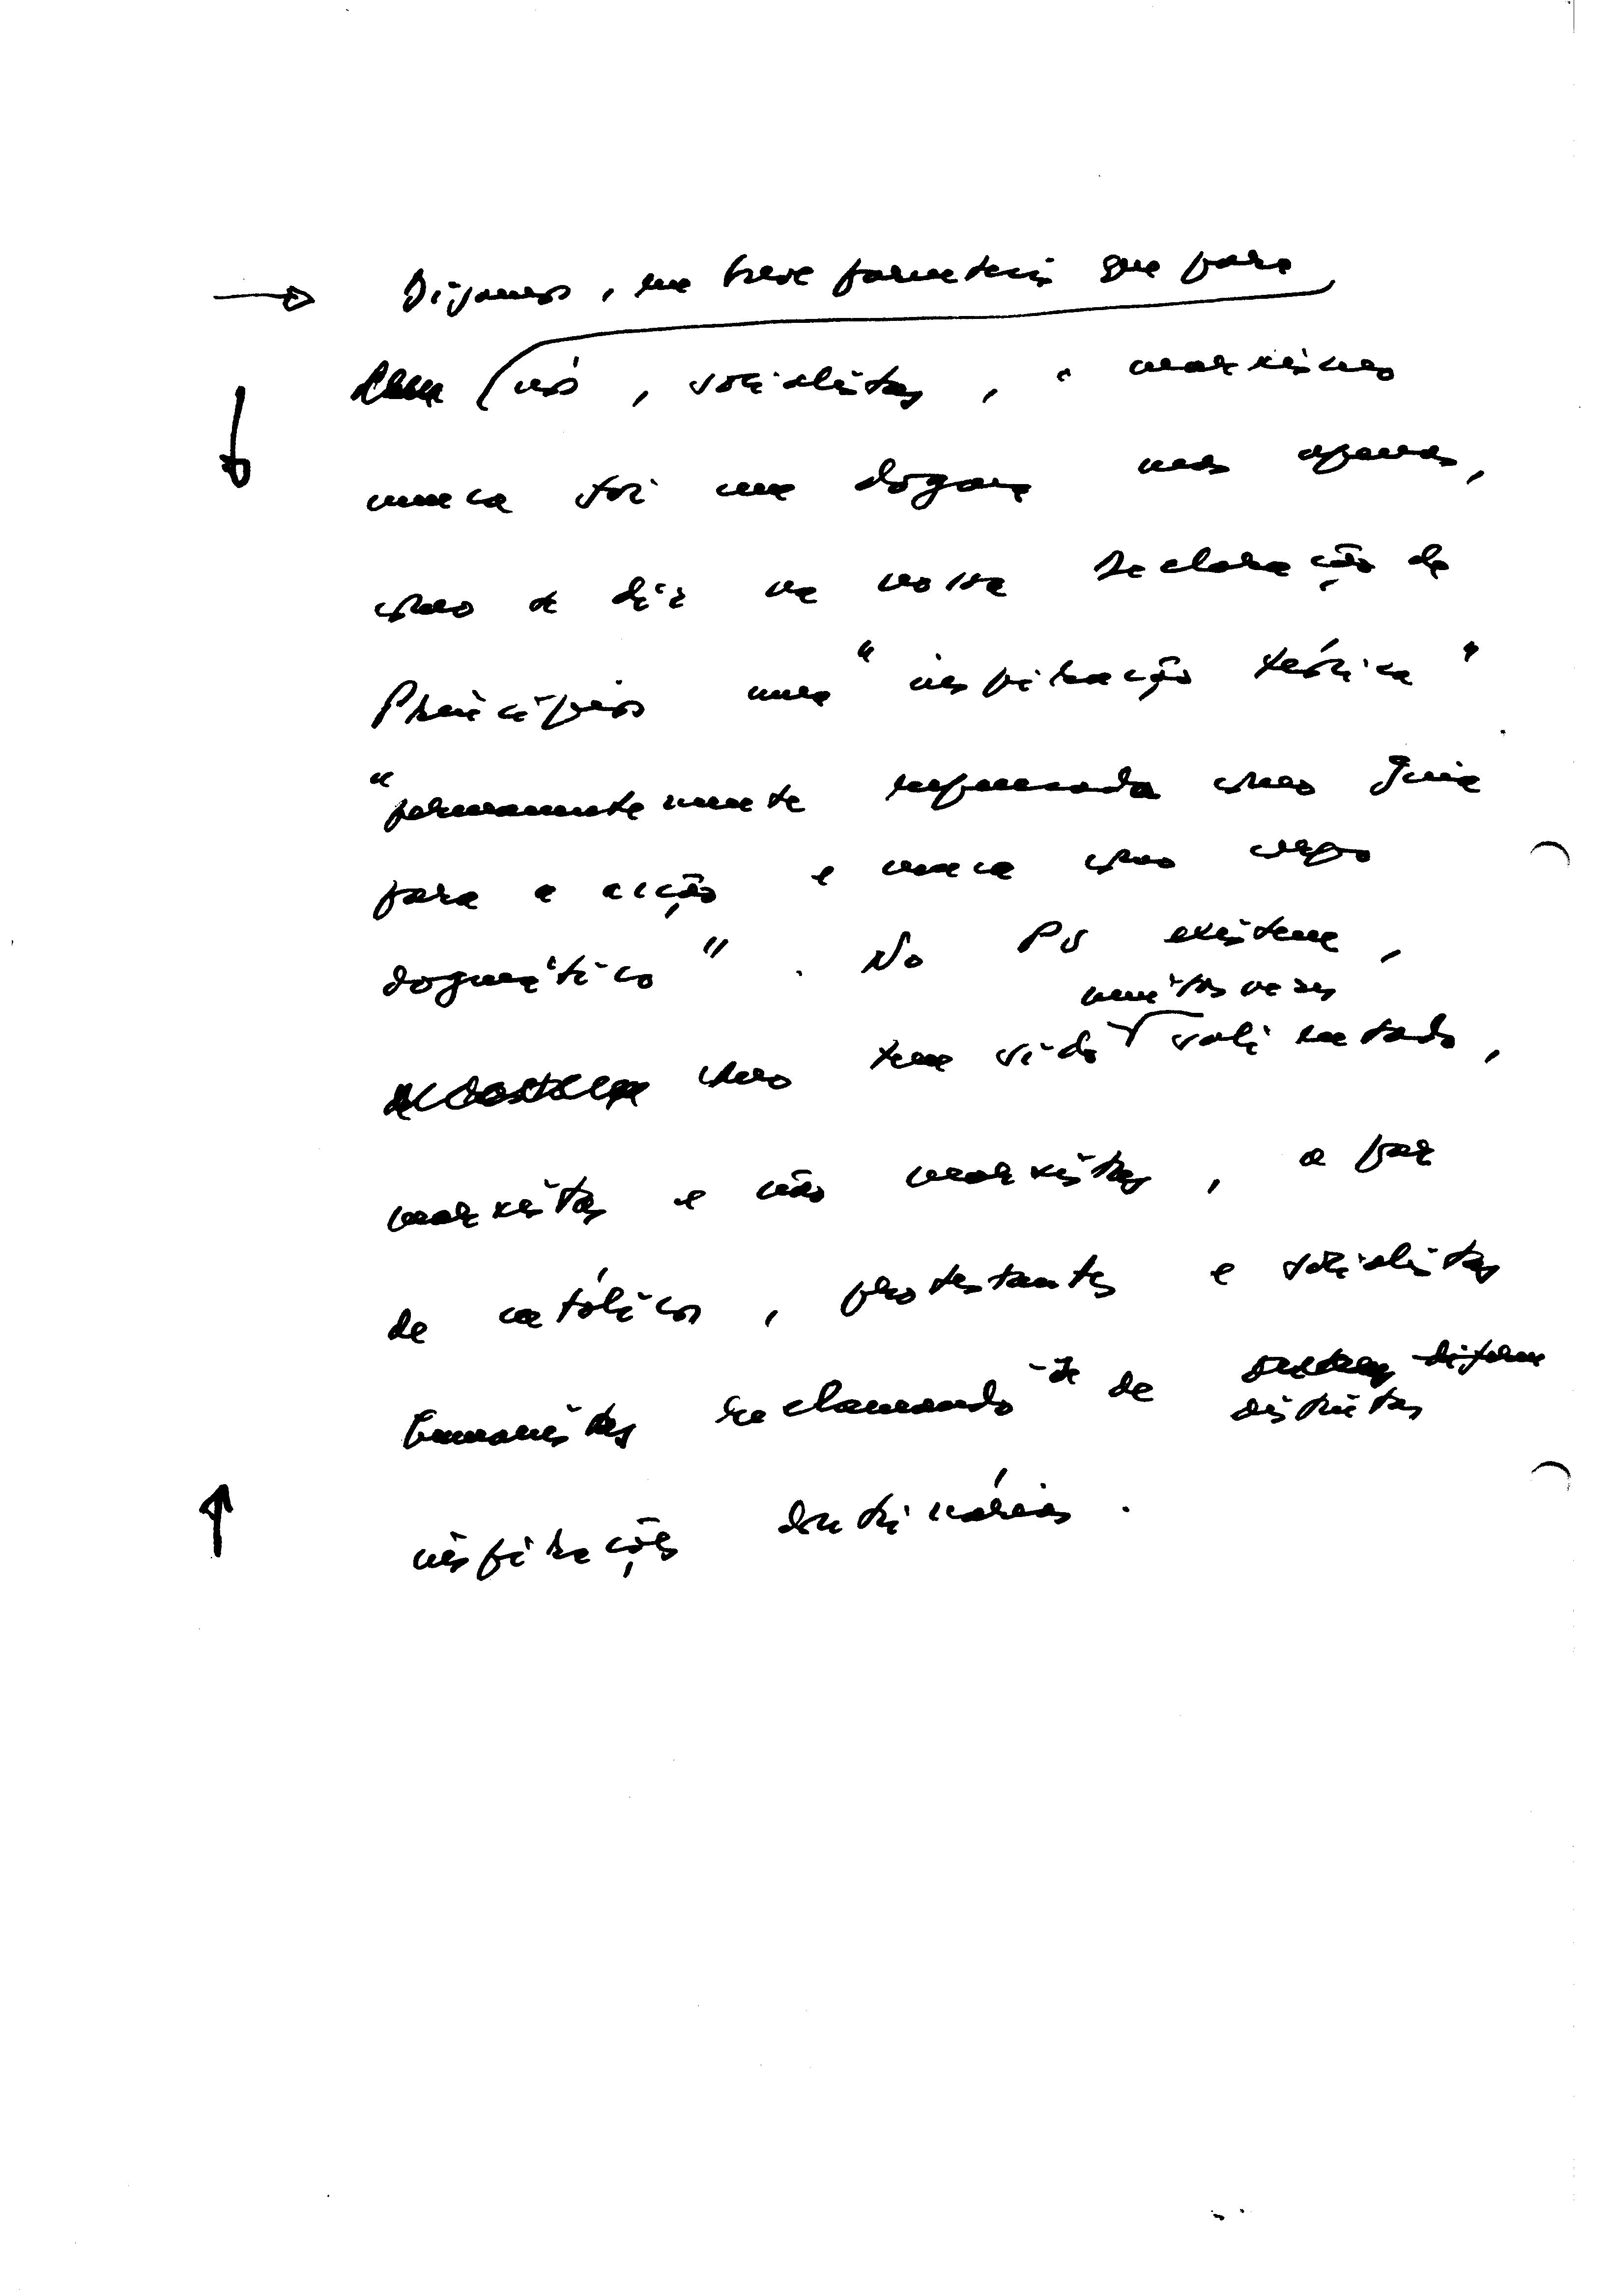 Digamos, em breve parentesis que para
nós, socialistas, o marxismo
nunca foi um dogma mas apenas,
como se diz na nossa Declaração de
Princípios uma "inspiração teórica"
"permanentemente repensada como guia
para a acção e nunca como corpo
dogmático". No PS existem,
muitas vezes
como tem sido salientado,
marxistas e não marxistas, a par
de católicos, protestantes e socialistas
humanistas reclamando-se de
distintas
inspirações doutrinárias.